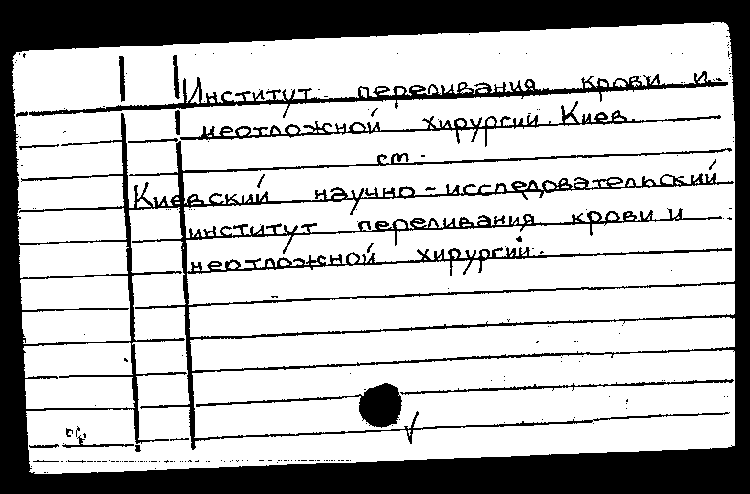 Институт переливания крови и
неотложной хирургии. Киев.
см.
Киевский научно-исследовательский
институт переливания крови и
неотложной хирургии.